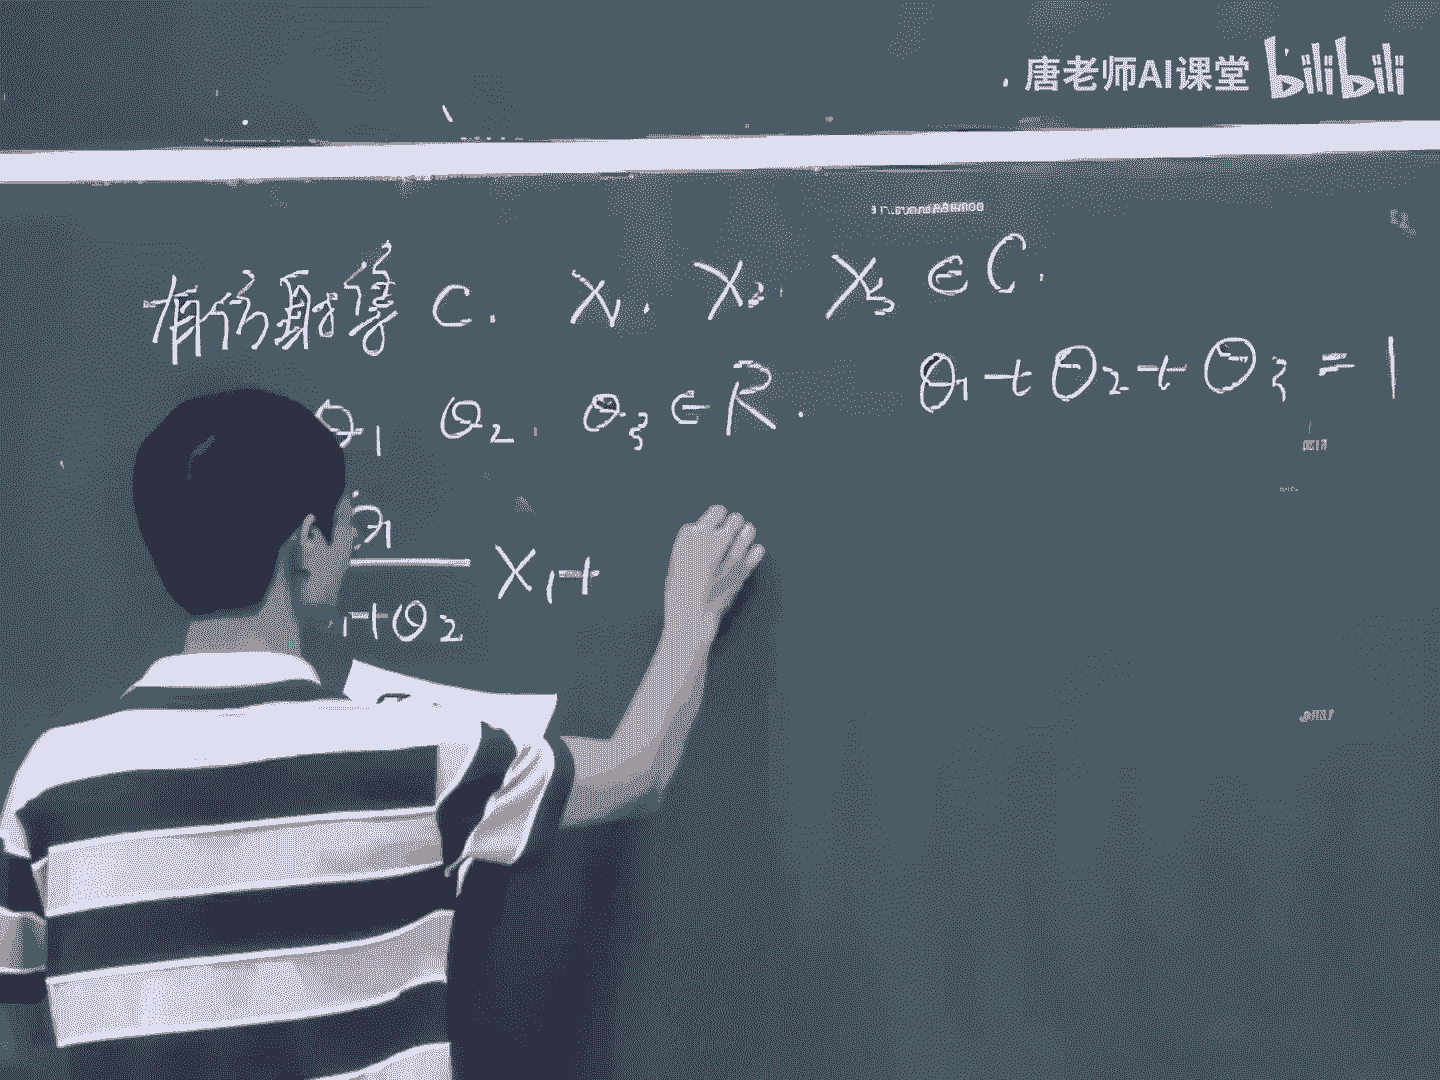 唐老师AI课堂 bilibili
有仿射集 C. X₁. X₂. X₃ ∈ C.
θ₁ θ₂. θ₃ ∈ R. θ₁ + θ₂ + θ₃ = 1
θ₁
X₁ +
+ θ₂